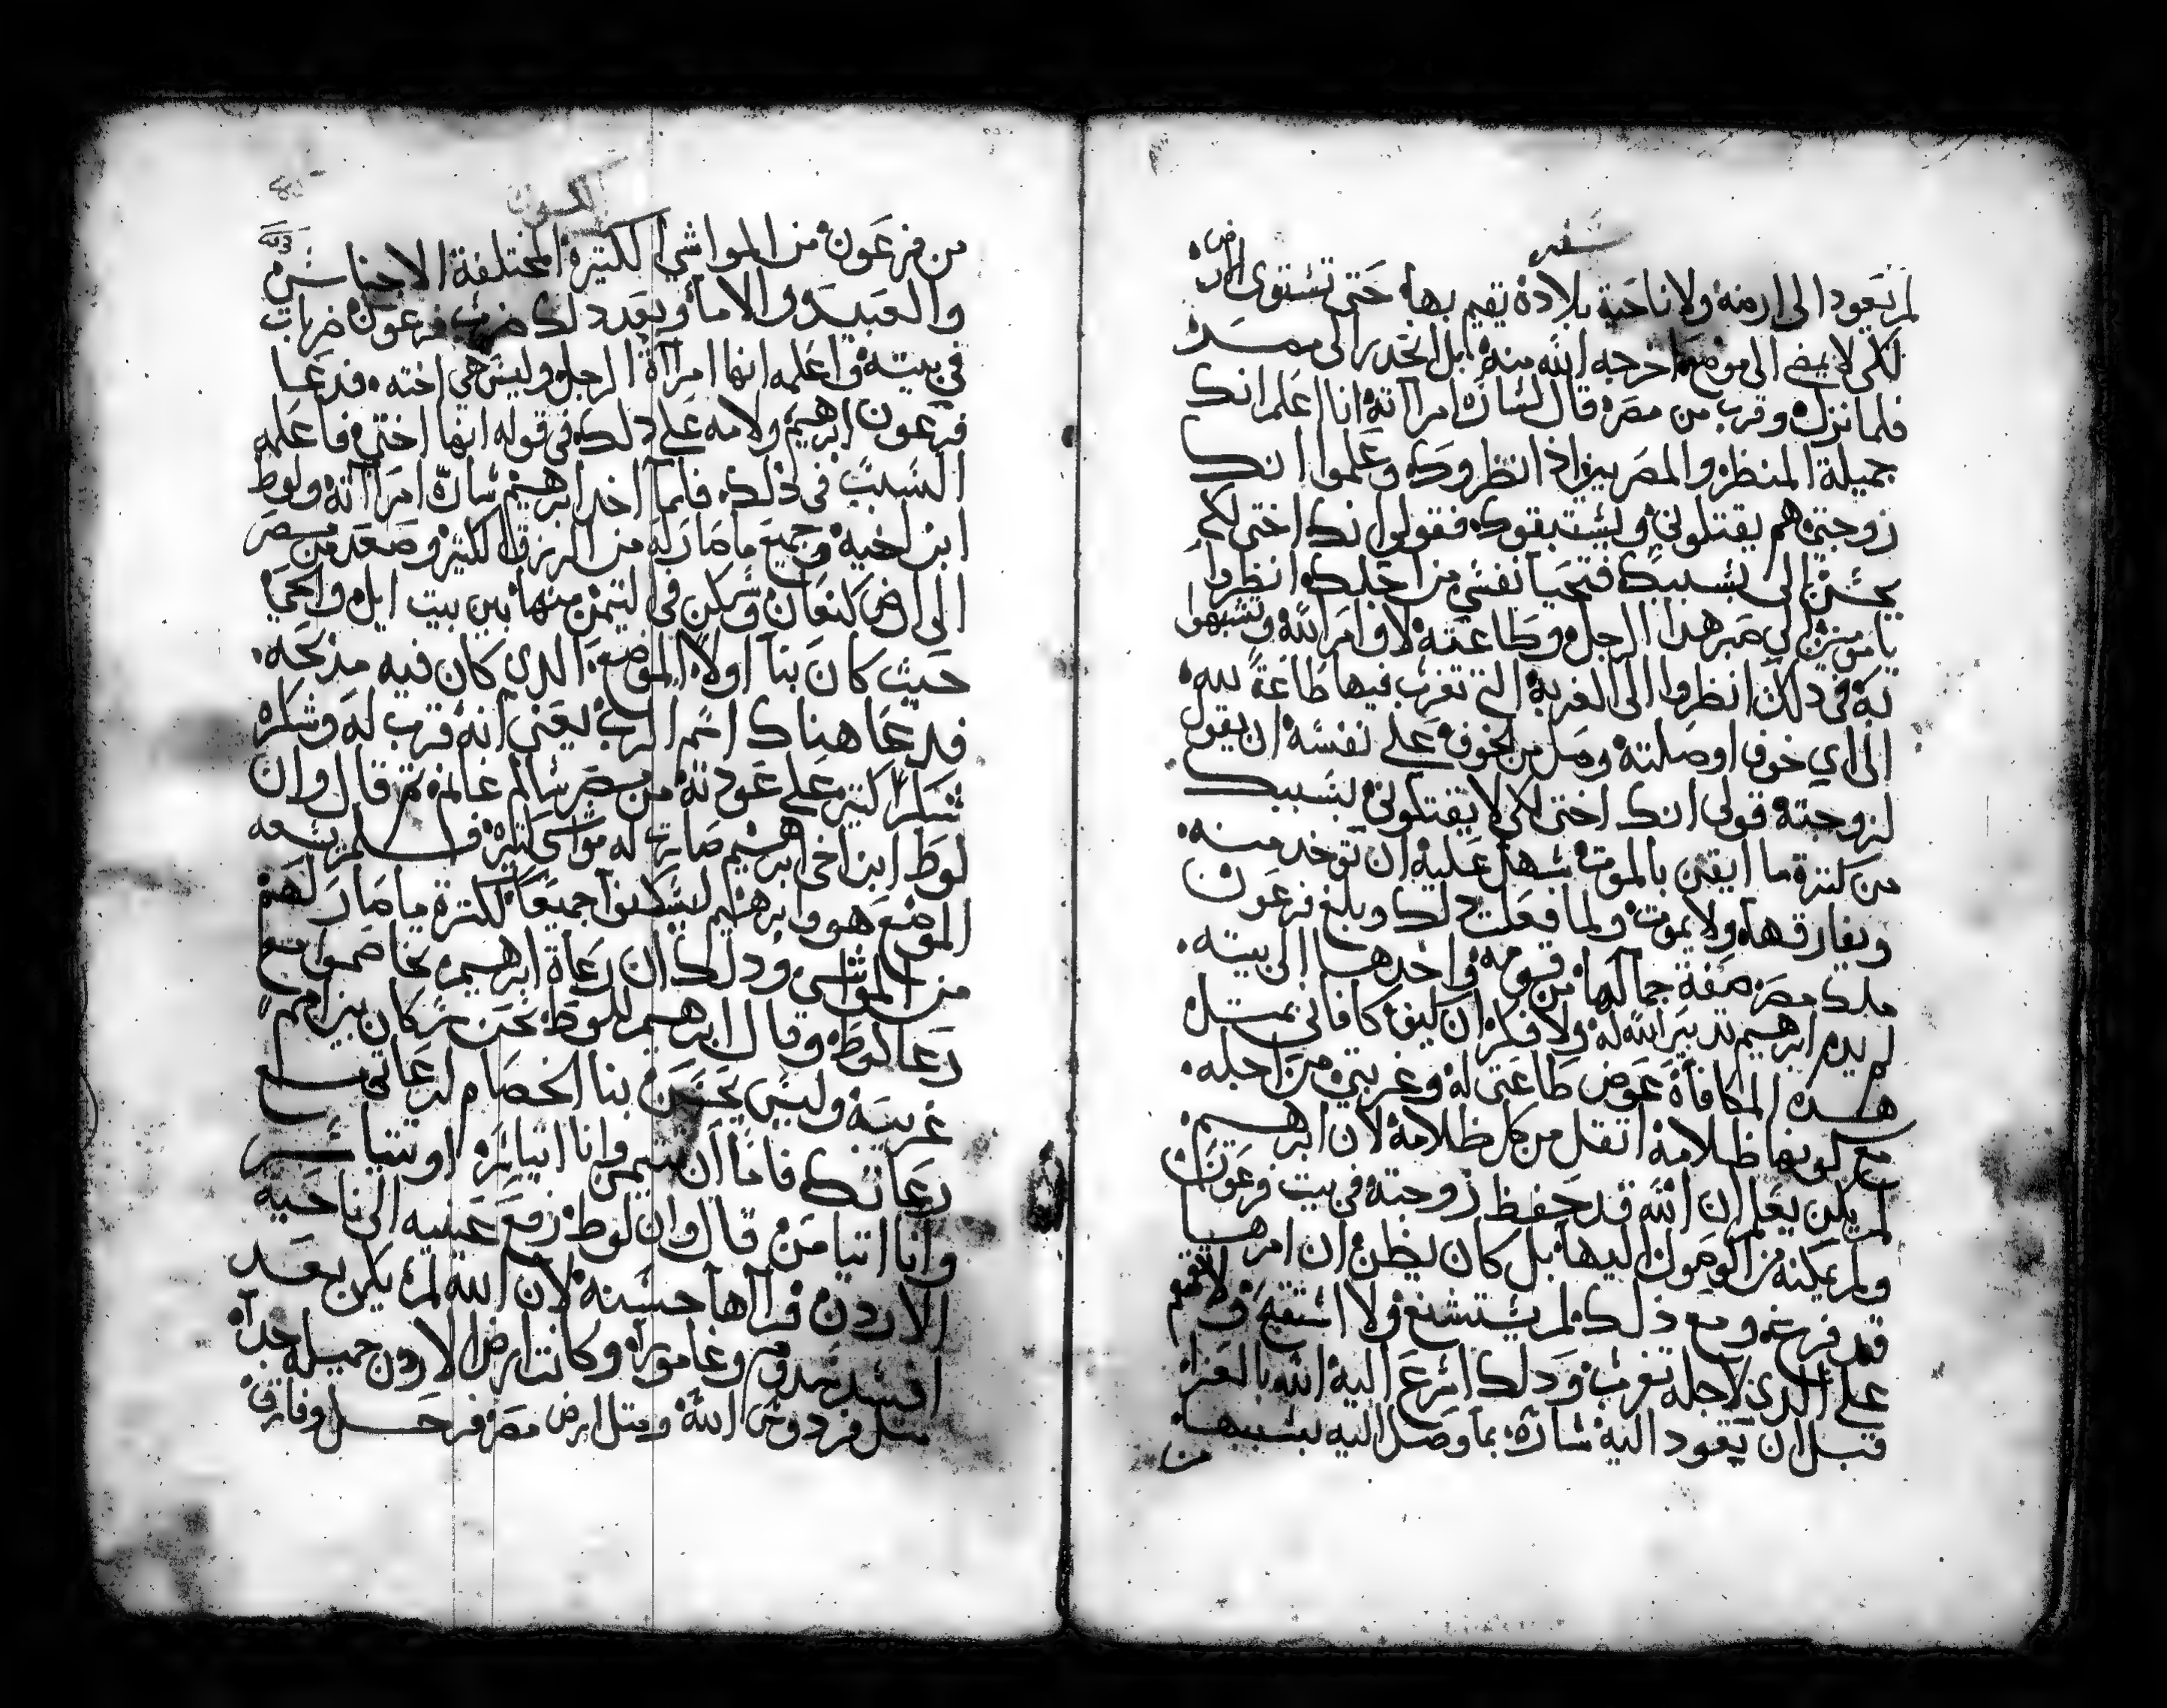 سفر
لم يعود الى ارضه ولا ناحية بلاده يقيم بها حتى تستوى الارض
لكى لا يمضى الى موضع اخرجه الله منه بل انحدر الى مصر
فلما نزل وقرب من مصر قال لساره امراته انا اعلم انك
جميلة المنظر والمصريين اذا نظروك وعلموا انك
زوجتى هم يقتلونى ويستبقوك فقولى انك اختى لكى
يحسن الى بسببك فتحيا نفسى من اجلك انظروا
يا مومنين الى صبر هدا الرجل وطاعته لاوامر الله وتشبهوا
به فى دلك انظروا الى الغربة التى تغرب فيها طاعة لله
الى اى خوف اوصلته وصل من الخوف على نفسه ان يقول
لزوجته قولى انك اختى لكى لا يقتلونى بسببك
من كترة ما ايقن بالموت سهل عليه ان توخد منه
ويفارقها ولا يموت ولما فعلت دلك وبلغ فرعون
ملك مصر صفة جمالها من قومه واخدها الى بيته
لم يدم ابرهيم تدبير الله له ولا فكر ان كيف كافانى بمتل
هده المكافاة عوض طاعتى له وغربتى من اجله
مع كونها ظلامة اتقل من كل ظلامة لان ابرهيم
لم يكن يعلم ان الله قد حفظ زوجته فى بيت فرعون
ولم يمكنه من الوصول اليها بل كان يظن ان امرها
قد فرغ ومع ذلك لم يستشنع ولا استقبح ولا تقمقم
على الدى لاجله تغرب ودلك اسرع اليه الله بالعزا
قبل ان يعود اليه ساره بما وصل اليه بسببها
من
الكون
من فرعون من المواشى الكتيره المختلفة الاجناس
والعبيد والاما وبعد دلك ضرب فرعون ضربات
فى بيته واعلمه انها امراة الرجل وليس هى اخته فدعا
فرعون ابرهيم ولامه على دلك فى قوله انها اختى فاعلمه
السبب فى ذلك فلما اخد ابرهيم ساره امراته ولوط
ابن اخيه وجميع ما صار له من الرزق الكتير وصعد من مصر
الى ارض كنعان وسكن فى التيمن منها بين بيت ايل واجى
حيت كان بنا اولا الموضع الدى كان فيه مدبحه
فدعا هناك اسم الرب يعنى انه قرب له وشكره
شكرا كتير على عودته من مصر سالم غانم تم قال وان
لوط ابن اخى ابرهيم صارت له مواشى كتيره فلم يسعه
الموضع هو وابرهيم ليسكنوا جميعا لكترة ما صار لهم
من المواشى ودلك ان رعاة ابرهيم تخاصموا مع
رعا لوط وقال ابرهيم للوط نحن سكان بين امم
غريبه وليس يحسن بنا الخصام لرعاتى مع
رعاتك فاما ان تتيمن وانا اتياسر او تتياسر
وانا اتيامن قال وان لوط رفع عينيه الى ناحية
الاردن فراها حسنه لان الله لم يكن بعد
افسد سدوم وغاموره وكانت ارض الاردن جميله جدا
متل فردوس الله ومتل ارض مصر فرحل وفارق